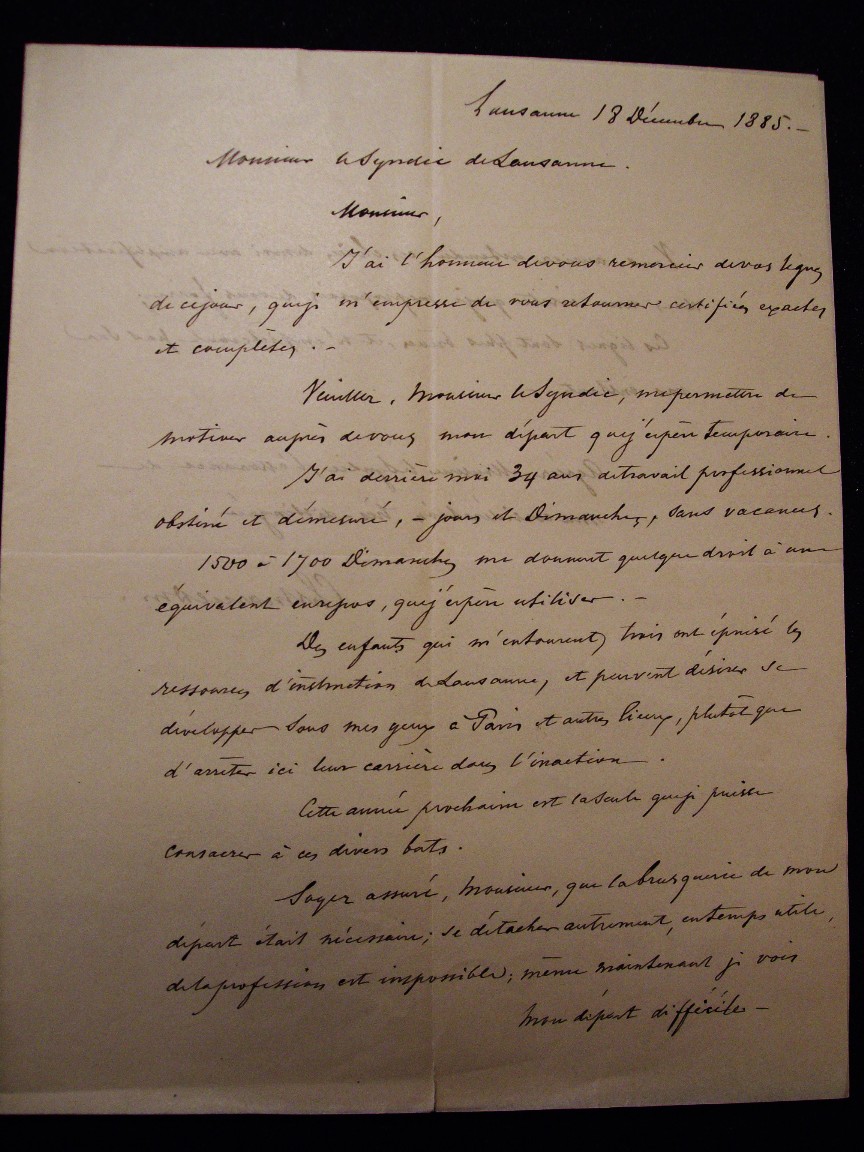 Lausanne 18 Décembre 1885. –
Monsieur le Syndic de Lausanne.
Monsieur,
J'ai l'honneur de vous remercier de vos lignes
de ce jour, que je m'empresse de vous retourner certifiées exactes
et complètes. –
Veuillez, Monsieur le Syndic, me permettre de
motiver auprès de vous mon départ que j'espère temporaire.
J'ai derrière moi 34 ans de travail professionnel
obstiné et démesuré, – jours et Dimanches, sans vacances.
1500 à 1700 Dimanches me donnent quelque droit à un
équivalent en repos, que j'espère utiliser. –
Des enfants qui m'entourent, trois ont épuisé les
ressources d'instruction de Lausanne, et peuvent désirer se
développer sous mes yeux à Paris et autres lieux, plutôt que
d'arrêter ici leur carrière dans l'inaction.
Cette année prochaine est la seule que je puisse
consacrer à ces divers buts.
Soyez assuré, Monsieur, que la brusquerie de mon
départ était nécessaire; se détacher autrement, en temps utile,
de la profession est impossible; même maintenant je vois
mon départ difficile –